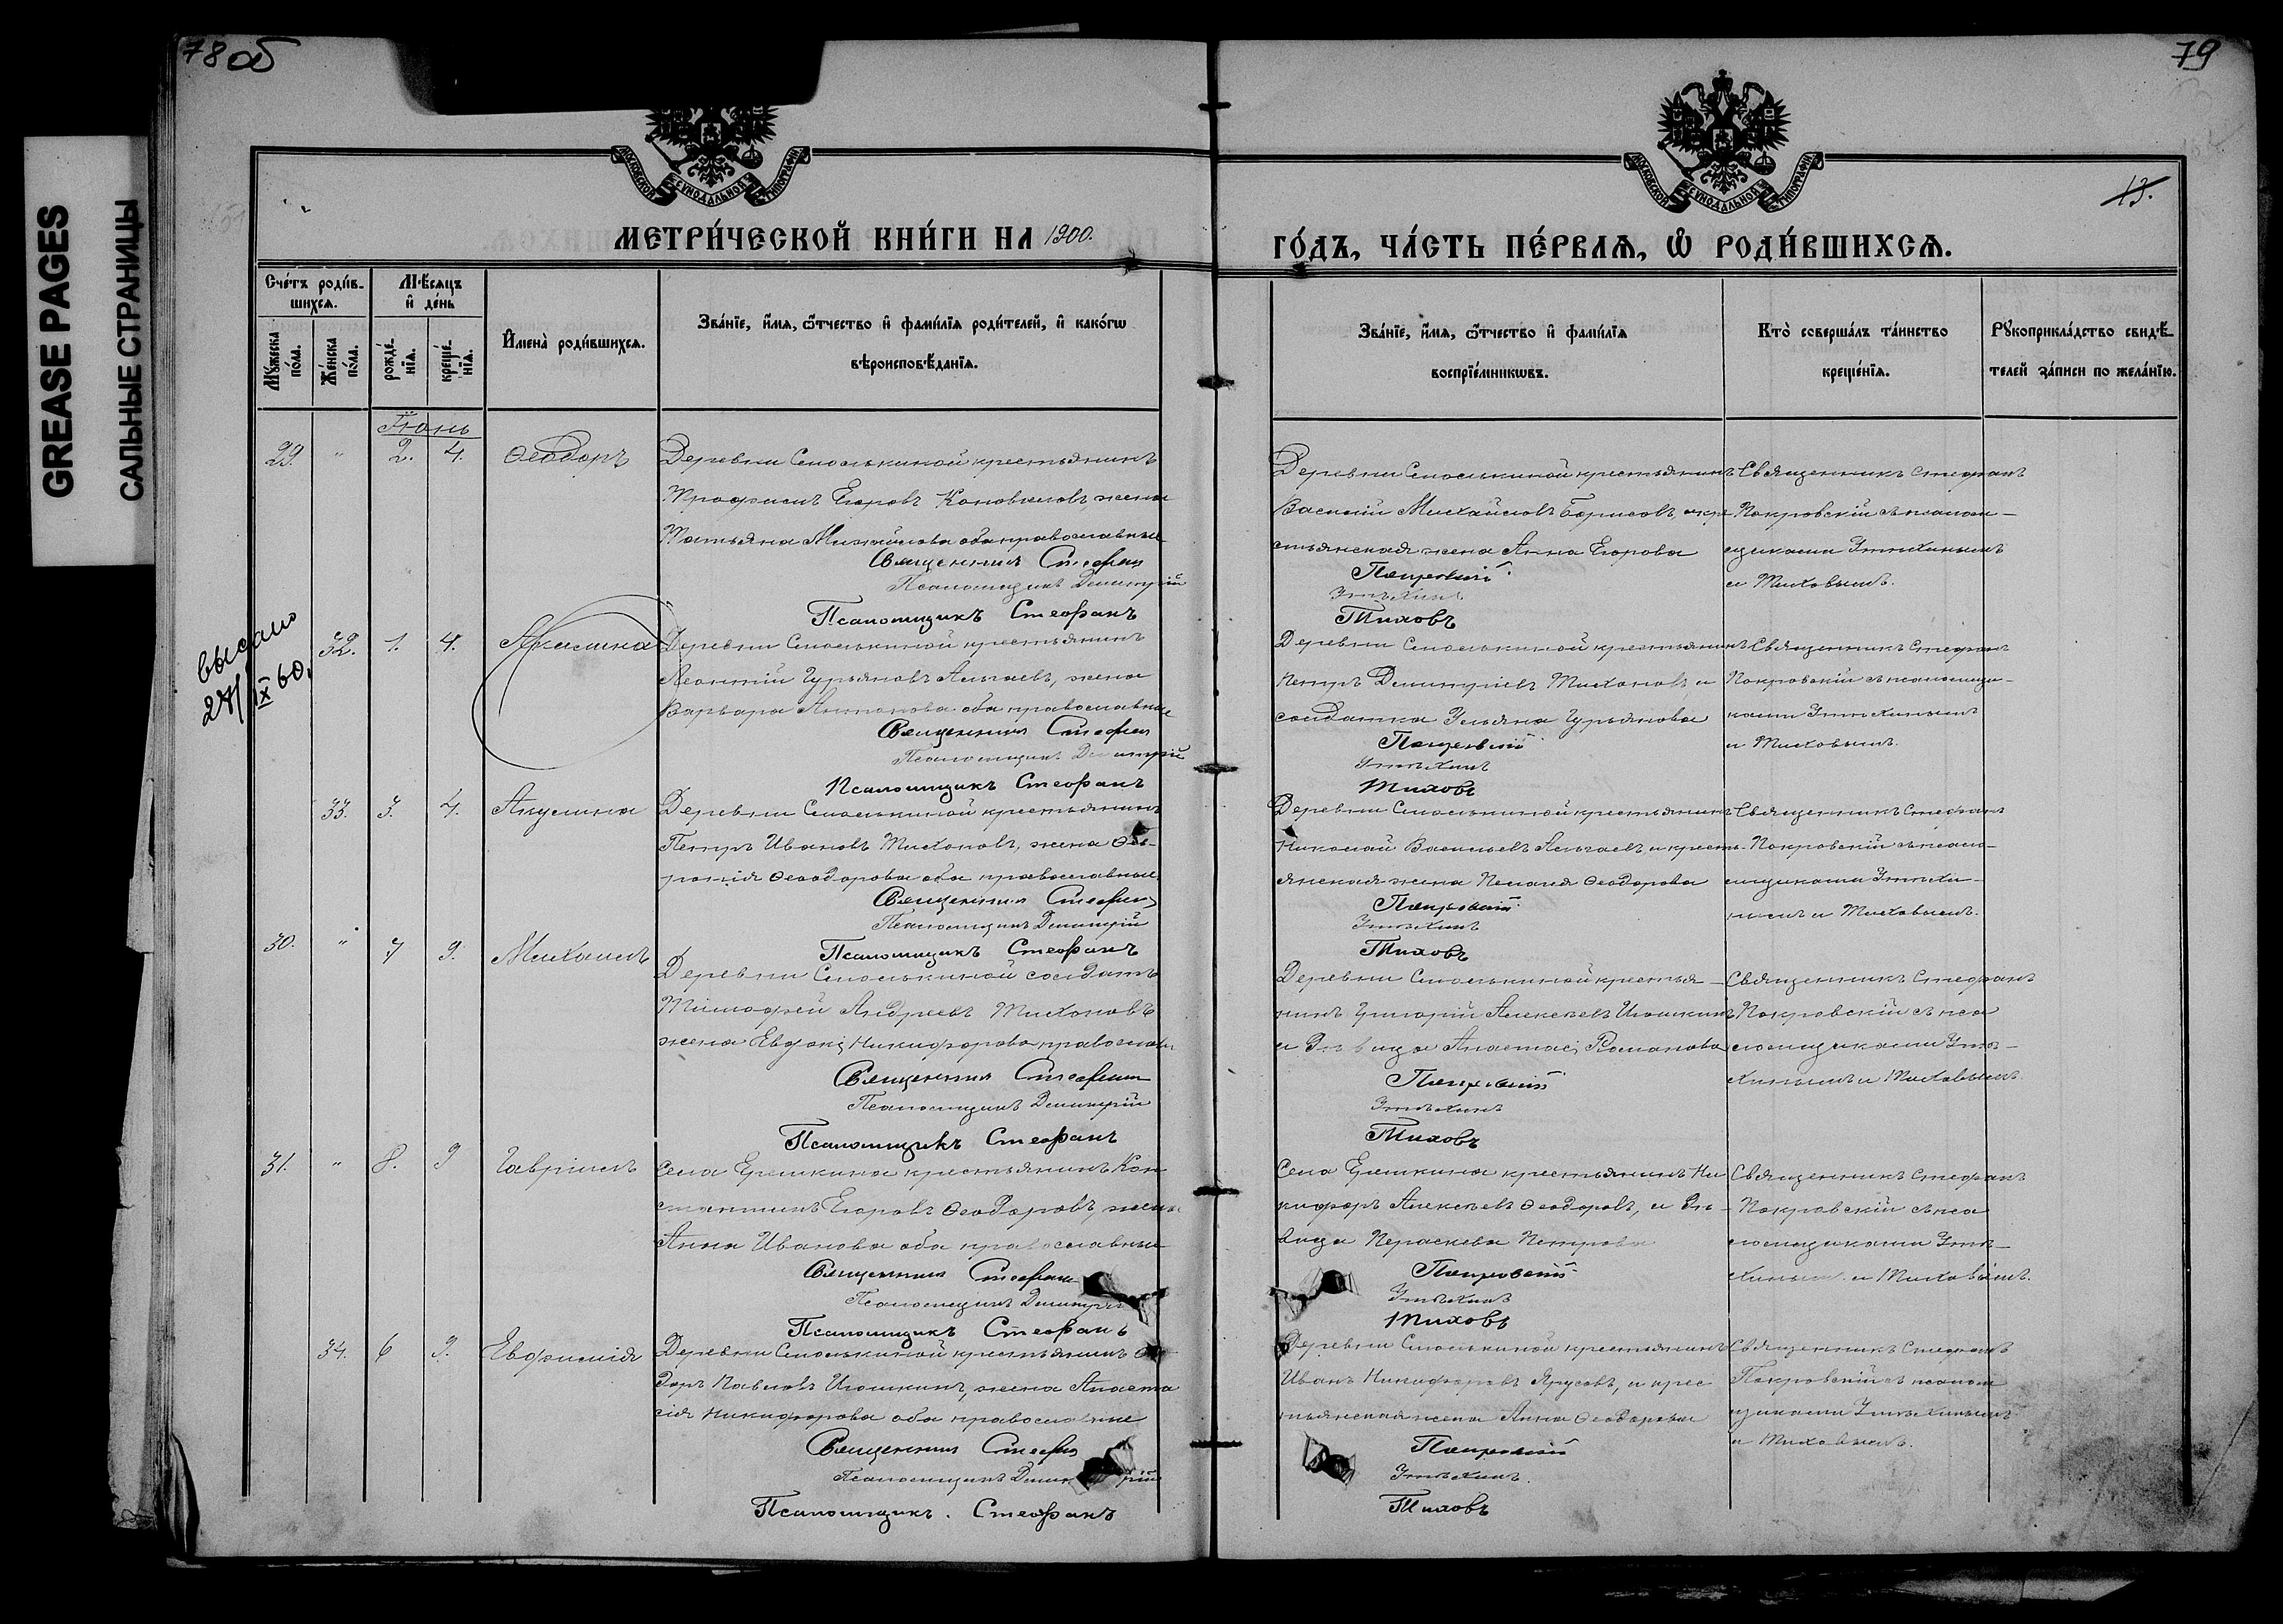 78 об
79
13.
GREASE PAGES
САЛЬНЫЕ СТРАНИЦЫ
МОСКОВСКОЙ СѴНОДАЛЬНОЙ ТИПОГРАФІИ
МОСКОВСКОЙ СѴНОДАЛЬНОЙ ТИПОГРАФІИ
МЕТРИ́ЧЕСКОЙ КНИ́ГИ НА 1900.
ГО́ДЪ, ЧА́СТЬ ПЕ́РВАѦ, Ѡ҆ РОДИ́ВШИХСѦ.
Сче́тъ роди́в-
шихсѧ.
Мꙋ́жеска по́ла.
Же́нска по́ла.
Мѣ́сѧцъ
и҆ де́нь
рожде́-
нїѧ.
креще́-
нїѧ.
И҆мена̀ роди́вшихсѧ.
Зва́нїе, и҆́мѧ, ѻ҆́тчество и҆ фами́лїѧ роди́телей, и҆ како́гѡ
вѣроисповѣ́данїѧ.
Зва́нїе, и҆́мѧ, ѻ҆́тчество и҆ фами́лїѧ
воспрїе́мникѡвъ.
Кто̀ соверша́лъ та́инство
креще́нїѧ.
Рꙋкоприкла́дство свидѣ́-
телей за́писи по жела́нїю.
Іюнь
29. " 2. 4. Ѳеодоръ
Деревни крестьянинъ
Трофимъ Егоровъ Коноваловъ, жена
Татьяна Михайлова оба православные
Священникъ Стефан
Псаломщикъ Димитрій
Псаломщикъ Стефанъ
Деревни крестьянинъ
Василій Михайловъ Борисовъ, и кре
стьянская жена Анна Егорова
Покровскій.
Утѣхинъ
Тиховъ
Священникъ Стефанъ
Покровскій съ псалом-
щиками Утѣхинымъ
и Тиховымъ.
выдано
27/IX 60.
32. 1. 4. Акилина
Деревни крестьянинъ
Леонтій Гурьяновъ Альгаевъ, жена
Варвара Антонова оба православные
Священникъ Стефан
Псаломщикъ Димитрій
Псаломщикъ Стефанъ
Деревни крестьянинъ
Петръ Димитріевъ Тихоновъ, и
солдатка Ульяна Гурьянова
Покровскій
Утѣхинъ
Тиховъ
Священникъ Стефанъ
Покровскій съ псаломщи-
ками Утѣхинымъ
и Тиховымъ.
33. 3. 4. Акулина
Деревни крестьянинъ
Петръ Ивановъ Тихоновъ, жена Фев-
ронія Ѳеодорова оба православные
Священникъ Стефан
Псаломщикъ Димитрій
Псаломщикъ Стефанъ
Деревни крестьянинъ
Николай Васильевъ Альгаевъ, и кресть-
янская жена Пелагія Ѳеодорова
Покровскій
Утѣхинъ
Тиховъ
Священникъ Стефанъ
Покровскій съ псало-
мщиками Утѣхи-
нымъ и Тиховымъ.
30. " 7 9. Михаилъ
Деревни солдатъ
Тимофей Андреевъ Тихоновъ
жена Евдокі Никифорова православн
Священникъ Стефан
Псаломщикъ Димитрій
Псаломщикъ Стефанъ
Деревни крестья-
нинъ Григорій Алексѣевъ Игошкинъ
и дѣвица Анастасі Романова
Покровскій
Утѣхинъ
Тиховъ
Священникъ Стефанъ
Покровскій съ пса
ломщиками Утѣ-
хинымъ и Тиховымъ.
31. " 8. 9 Гавріилъ
Села Ерыклинска крестьянинъ Кон
стантинъ Егоровъ Ѳеодоровъ, жена
Анна Иванова оба православные
Священникъ Стефан
Псаломщикъ Димитрій
Псаломщикъ Стефанъ
Села крестьянинъ Ни
кифоръ Алексѣевъ Ѳеодоровъ, и дѣ-
вица Параскева Петрова
Покровскій
Утѣхинъ
Тиховъ
Священникъ Стефанъ
Покровскій съ пса
ломщиками Утѣ-
хинымъ и Тиховымъ.
34. 6 9. Евфимія
Деревни крестьянинъ Ѳео
доръ Павловъ Игошкинъ, жена Анаста
сія Никифорова оба православные
Священникъ Стефан
Псаломщикъ Димитрій
Псаломщикъ. Стефанъ
Деревни крестьянинъ
Иванъ Никифоровъ Ярусовъ, и крес
тьянская жена Анна Ѳеодорова
Покровскій
Утѣхинъ.
Тиховъ
Священникъ Стефанъ
Покровскій съ псалом
щиками Утѣхинымъ
и Тиховымъ.